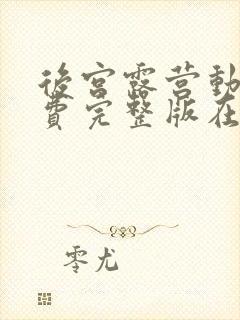 後宮露营動
費完整版在
零尤